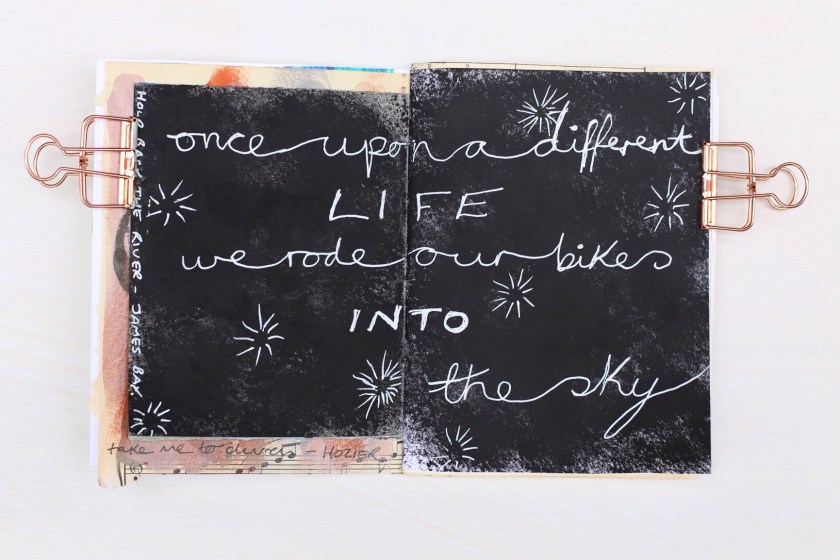 once upon a different
LIFE
we rode our bikes
INTO
the sky
HOLD BACK THE RIVER - JAMES BAY.
take me to church - HOZIER